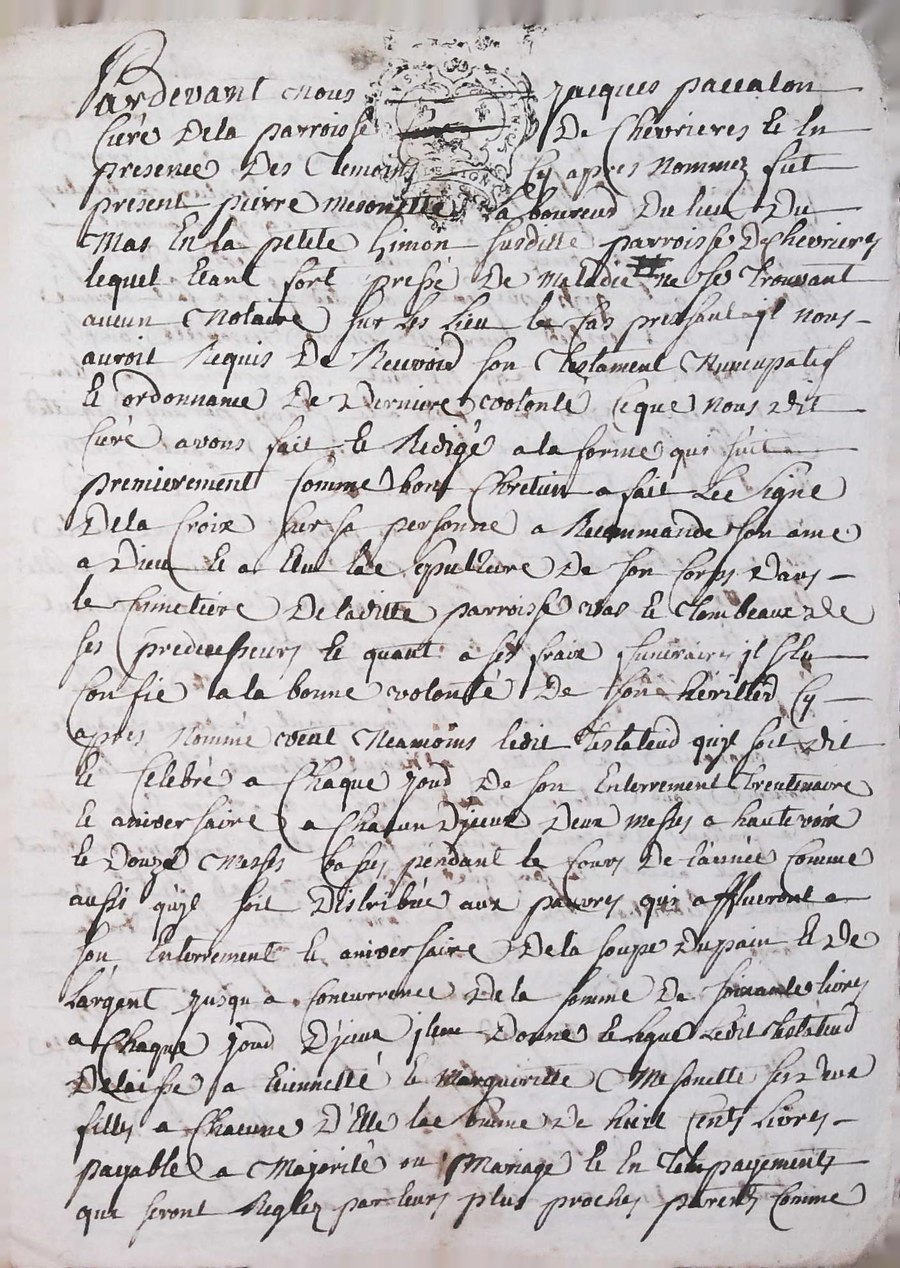 Pardevant nous Jacques paccalon
Curé Dela parroisse De Chevrieres Et En
presence Des Temoins Cy apres Nommez fut
present pierre mesonette Laboureur Du lieu Du
Mas En la petite Gimon susditte parroisse De chevrieres
lequel Etant fort pressé De maladie ne se Trouvant
aucun Notaire sur Les Lieu le Cas pressant il nous
auroit Requis De Recevoir son Testament Nuncupatif
Et ordonnance De Derniere volonté Ceque nous dit
Curé avons fait et Redigé a la forme qui suit
premierement Comme bon Chretien a fait Lee signe
Dela Croix sur sa personne a Recommandé son ame
a Dieu Et a Elu lae sepulture De son Corps Dans
le Cimetiere De laditte parroisse vas et Tombeaux de
ses predecesseurs et quant a ses fraix funeraires il s'En
Confie a la bonne volonté De son heritier Cy
apres Nommé veut Neamoins ledit Testateur quil soit dit
Et Celebré a Chaque jour De son Enterrement Trentenaire
Et aniversaire a Chacun D'jceux Deux messes a haute voix
Et Douze Messes basses pendant le Cours De l'année Comme
aussi quil soit Distribué aux pauvres qui afflueront a
son Enterrement Et aniversaire Dela soupe Dupain Et De
L'argent Jusqu a Concurrence Dela somme De soixante livres
a Chaque jour D'jceux jtem Donne Et legue Ledit Testateur
Delaisse a Etiennette Et Margueritte Mesonette ses deux
filles a Chacune D'Elle lae somme De huit Cents Livres
payable a Majorité ou Mariage Et En Tels payements
que seront Reglez par leurs plus proches parents Comme